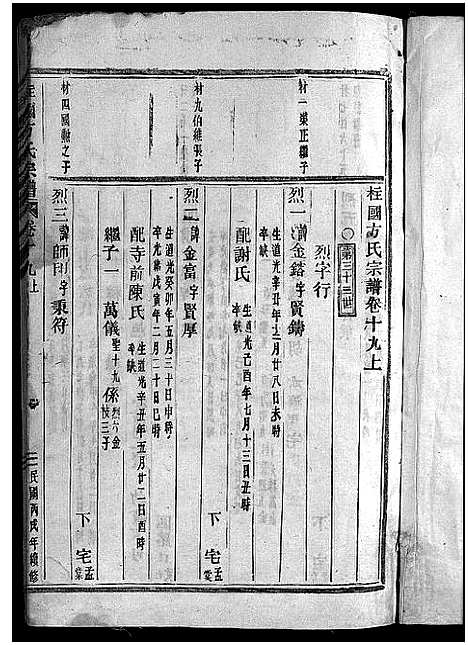 桂國方氏宗譜卷十九上
第三十三世
烈字行
材一槊正繼子
烈一 諱金鎝字賢鑄
生道光辛丑年十二月廿八日未時
卒缺
配謝氏 生道光己酉年七月十三日丑時
卒缺
下宅 孟棠
材九伯維張子
烈二 諱金富字賢厚
生道光癸卯年五月三十日申時
卒光緒戊寅年二月二十日巳時
配寺前陳氏 生道光辛丑年五月廿二日酉時
卒缺
繼子一 萬儀 聖十九 係烈六金 三子
下宅 孟棠
材四國勳之子
烈三 諱師印字秉符
民國丙戌年續修